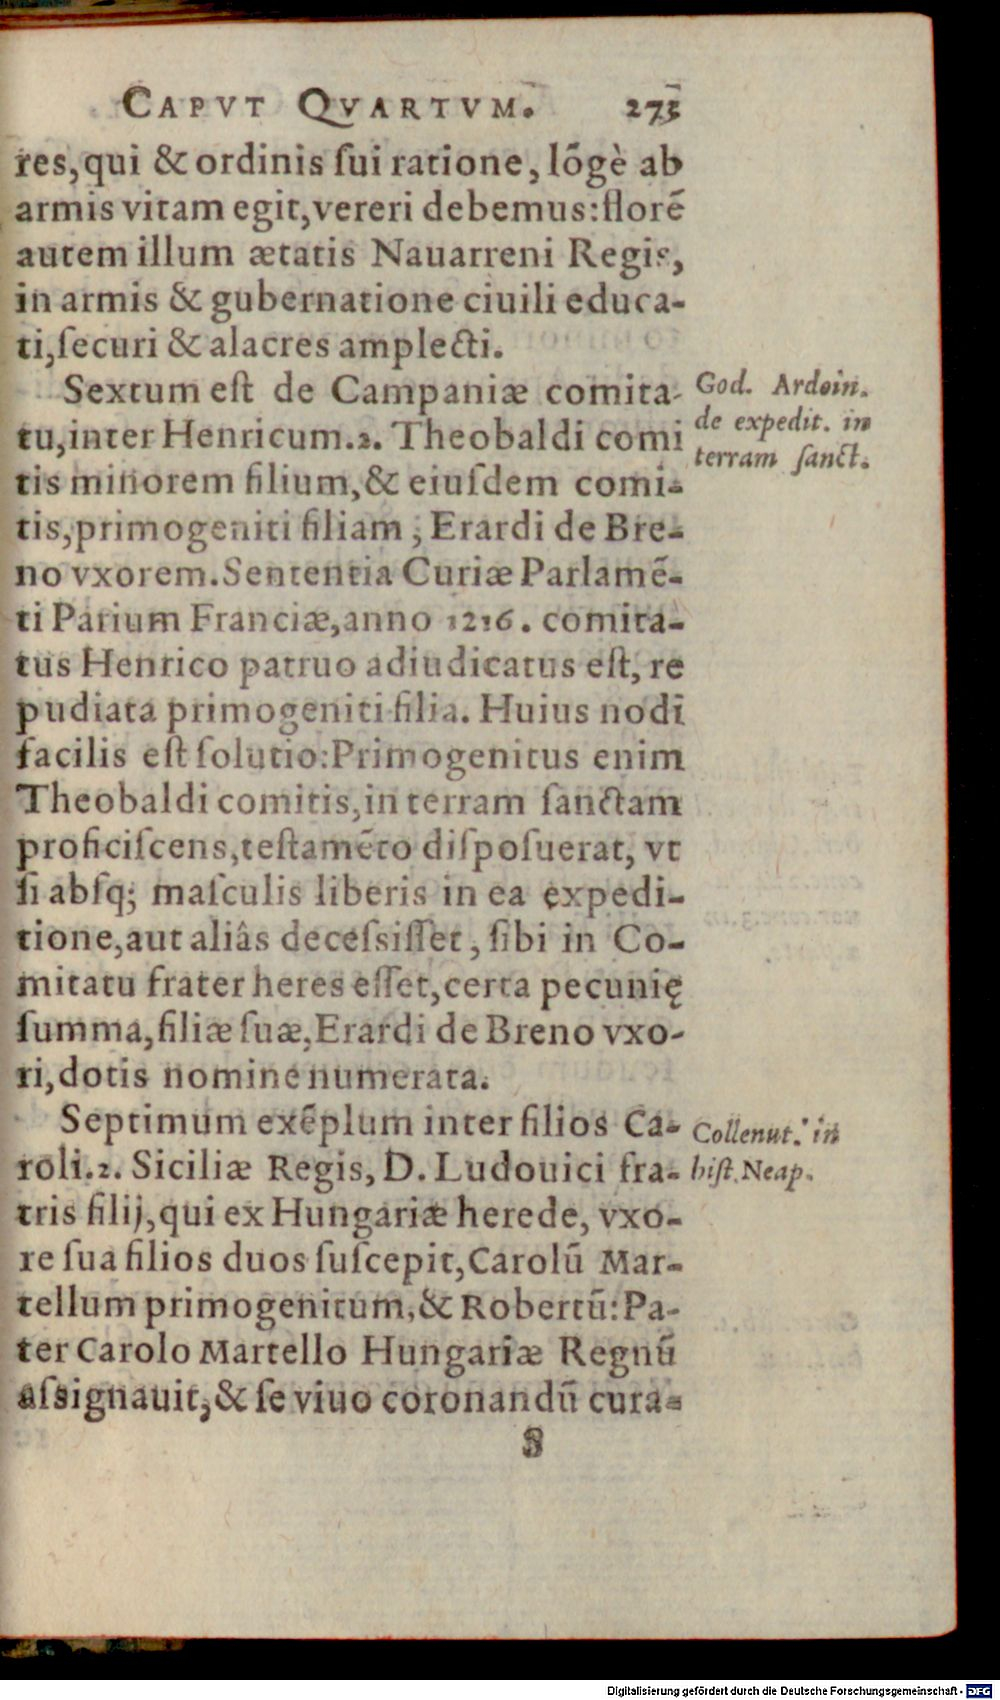 CAPVT QVARTVM. 273
res, qui & ordinis ſui ratione, lõgè ab
armis vitam egit, vereri debemus: florẽ
autem illum ætatis Nauarreni Regis,
in armis & gubernatione ciuili educa-
ti, ſecuri & alacres amplecti.
Sextum eſt de Campaniæ comita-
tu, inter Henricum .2. Theobaldi comi
tis minorem filium, & eiuſdem comi-
tis, primogeniti filiam, Erardi de Bre-
no vxorem. Sententia Curiæ Parlamẽ-
ti Parium Franciæ, anno 1216. comita-
tus Henrico patruo adiudicatus eſt, re
pudiata primogeniti filia. Huius nodi
facilis eſt ſolutio: Primogenitus enim
Theobaldi comitis, in terram ſanctam
proficiſcens, teſtamẽto diſpoſuerat, vt
ſi abſq; maſculis liberis in ea expedi-
tione, aut aliâs deceſſiſſet, ſibi in Co-
mitatu frater heres eſſet, certa pecunię
ſumma, filiæ ſuæ, Erardi de Breno vxo-
ri, dotis nomine numerata.
God. Ardoin.
de expedit. in
terram ſanct.
Septimum exẽplum inter filios Ca-
roli .2. Siciliæ Regis, D. Ludouici fra-
tris filij, qui ex Hungariæ herede, vxo-
re ſua filios duos ſuſcepit, Carolũ Mar-
tellum primogenitum, & Robertũ: Pa-
ter Carolo Martello Hungariæ Regnũ
aſsignauit, & ſe viuo coronandũ cura-
Collenut. in
hiſt. Neap.
S
Digitalisierung gefördert durch die Deutsche Forschungsgemeinschaft - DFG